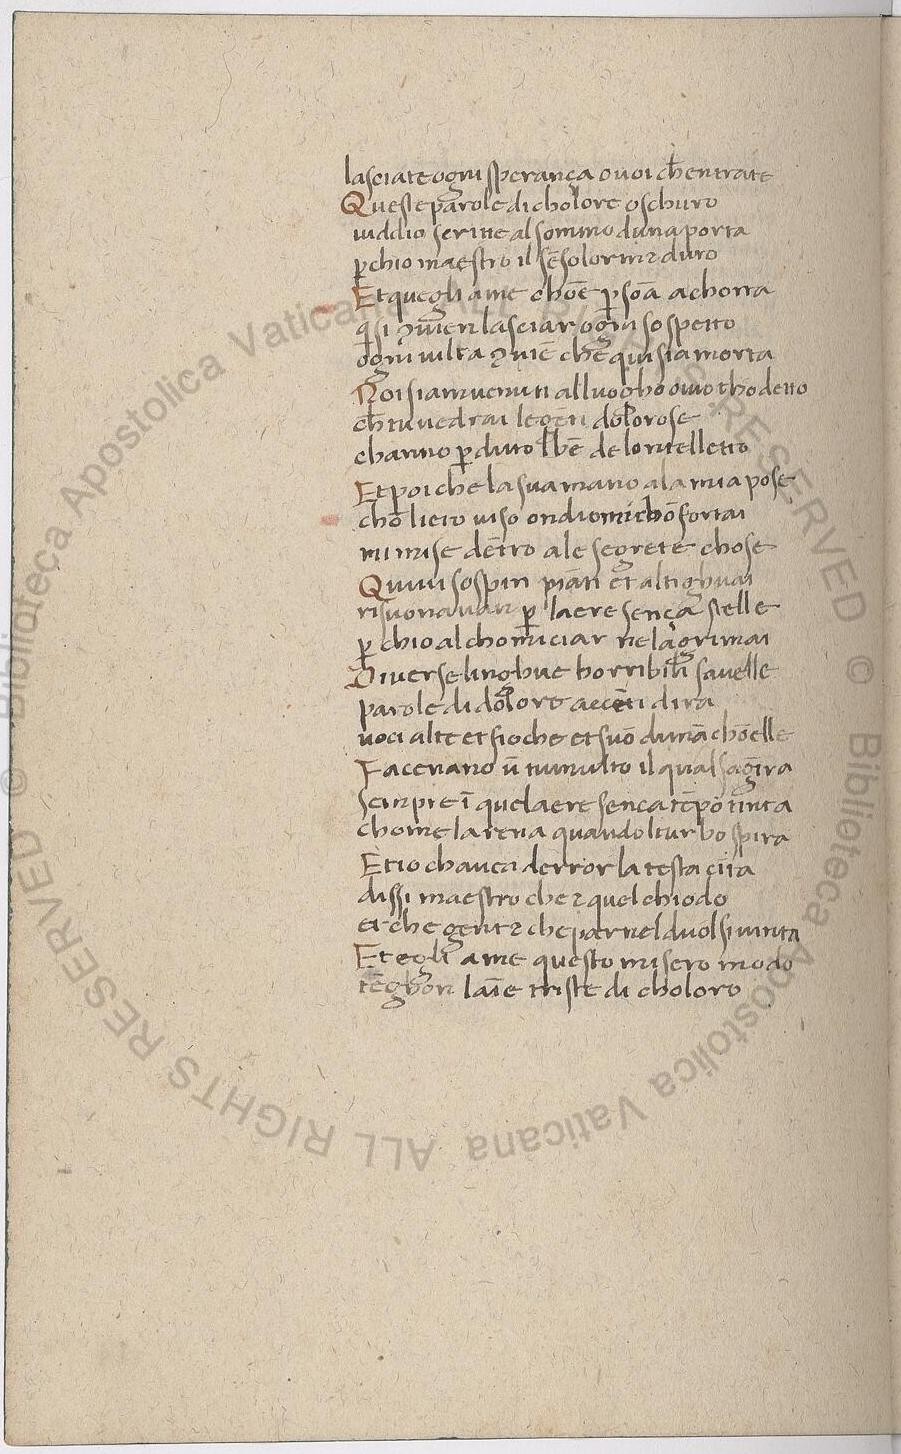 lasciate ogni sperança o voi ch̄entrate
Queste parole di cholore oschuro
viddio scritte al sommo duna porta
p̱chio maestro il sēsolorm e duro
Et quegli a me chōe p̱sōa achorta
q̄ si ꝯvien lasciar ogni sospetto
ogni vilta ꝯviē che qui sia morta
Noi siam venuti alluogho ovio tho detto
ch̄ tu vedrai le gēti dolorose
channo p̱duto lbē delontelletto
Et poi che la sua mano ala mia pose
chō lieto viso ondio mi chōfortai
mi mise dētro ale segrete chose
Quivi sospiri piāti et alti ghuai
risuonavan p̱ laere sença stelle
p̱ chio al chominciar ne lagrimai
Diverse linghue horribili favelle
parole di dolore accēti dira
voci alte et fioche et suō dimā chōelle
Facevano ū tumulto il qual sagira
sempre ī quelaere senca tēpo tinta
chome larena quando lturbo spira
Et io chavea derror la testa cita
dissi maestro che e quel chiodo
et che gent e che par nel duol si vinta
Et egli a me questo misero modo
tēghon laīe triste di choloro
© Biblioteca Apostolica Vaticana ALL RIGHTS RESERVED
© Biblioteca Apostolica Vaticana ALL RIGHTS RESERVED